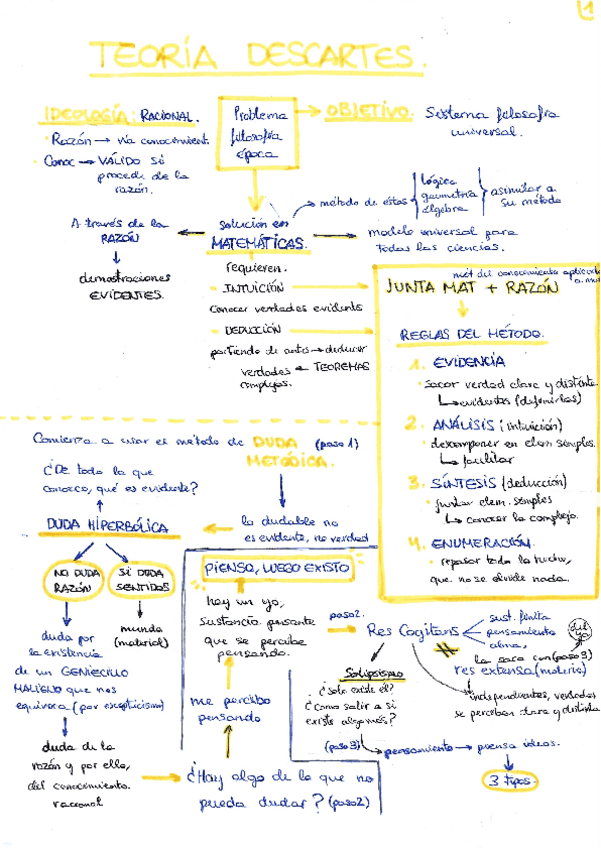 1
TEORÍA DESCARTES.
IDEOLOGÍA: RACIONAL.
· Razón → vía conocimient.
· Conoc → VÁLIDO si
procede de la
razón.
Problema
filosofía
época
→ OBJETIVO: Sistema filosofía
universal.
A través de la
RAZÓN
demostraciones
EVIDENTES.
solución en
MATEMÁTICAS.
→ método de estas
lógica
geometría
álgebra
asimilar a
su método
modelo universal para
todas las ciencias.
requieren.
- INTUICIÓN
conocer verdades evidents
- DEDUCCIÓN
partiendo de antes → deducir
verdades ← TEOREMAS
complejas.
mét del conocimiento
JUNTA MAT + RAZÓN
REGLAS DEL MÉTODO.
1. EVIDENCIA
· sacar verdad clara y distinta
↳ evidentes (definirlas)
2. ANÁLISIS (intuición)
· descomponer en elem simples.
↳ facilitar
3. SÍNTESIS (deducción)
· juntar elem. simples
↳ conocer lo complejo.
4. ENUMERACIÓN.
· repasar todo lo hecho,
que no se olvide nada.
Comienza a usar el método de DUDA (paso 1)
METÓDICA.
¿De todo lo que
conozco, qué es evidente?
DUDA HIPERBÓLICA
lo dudable no
es evidente, no verdad
NO DUDA
RAZÓN
SI DUDA
SENTIDOS
mundo
(material)
duda por
la existencia
de un GENIECILLO
MALIGNO que nos
equivoca (por escepticismo)
duda de la
razón y por ello,
del conocimiento
racional
→ ¿Hay algo de lo que no
pueda dudar? (paso 2)
me percibo
pensando
PIENSO, LUEGO EXISTO
hay un yo,
sustancia pensante
que se percibe
pensando.
paso 2.
Res Cogitans
sust. finita
pensamiento
alma,
la saca con (paso 3)
del
yo
res extensa (materia)
independientes, verdades
se perciben clara y distinta
Solipsismo
¿Solo existe él?
¿Como salir a si
existe algo más?
(paso 3) → pensamiento → piensa ideas.
3 tipos.